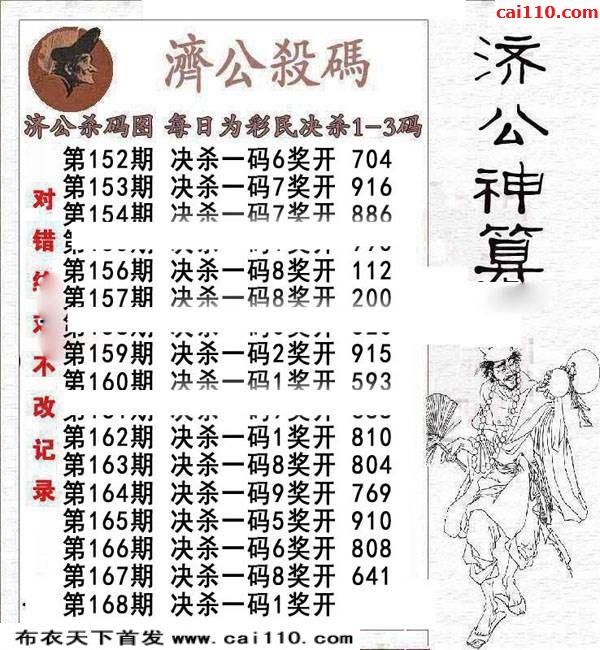 cai110.com
濟公殺碼
济公杀码图 每日为彩民决杀1-3码
第152期 决杀一码6奖开 704
第153期 决杀一码7奖开 916
第154期 决杀一码7奖开 886
第156期 决杀一码8奖开 112
第157期 决杀一码8奖开 200
第159期 决杀一码2奖开 915
第160期 决杀一码1奖开 593
第162期 决杀一码1奖开 810
第163期 决杀一码8奖开 804
第164期 决杀一码9奖开 769
第165期 决杀一码5奖开 910
第166期 决杀一码6奖开 808
第167期 决杀一码8奖开 641
第168期 决杀一码1奖开
对错
不改记录
济公神算
布衣天下首发 www.cai110.com